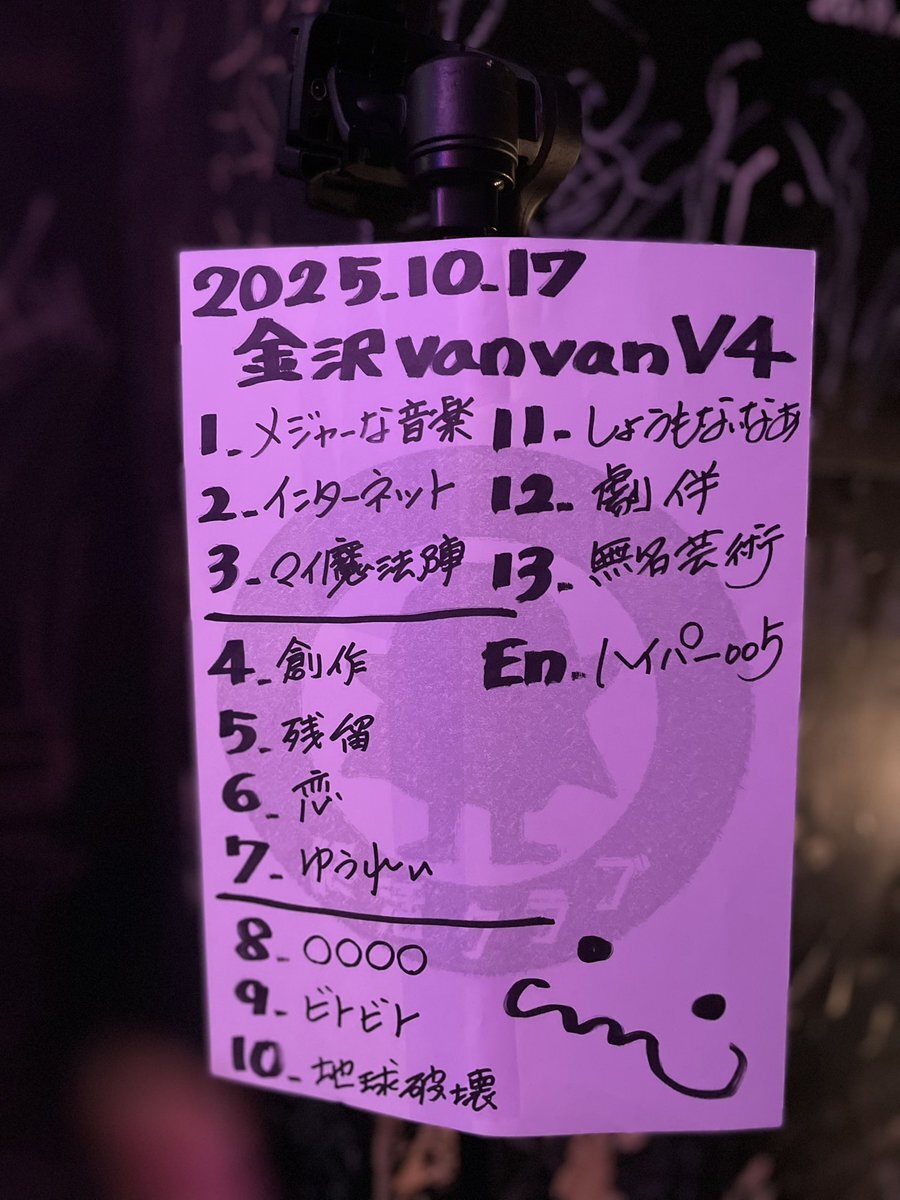 2025.10.17
金沢vanvanV4
1.メジャーな音楽
2.インターネット
3.ロイ魔法陣
4.創作
5.残留
6.恋
7.ゆうれい
8.○○○○
9.ビトビト
10.地球破壊
11.しょうもないなあ
12.劇伴
13.無名芸術
En.ハイパー005
クラブ